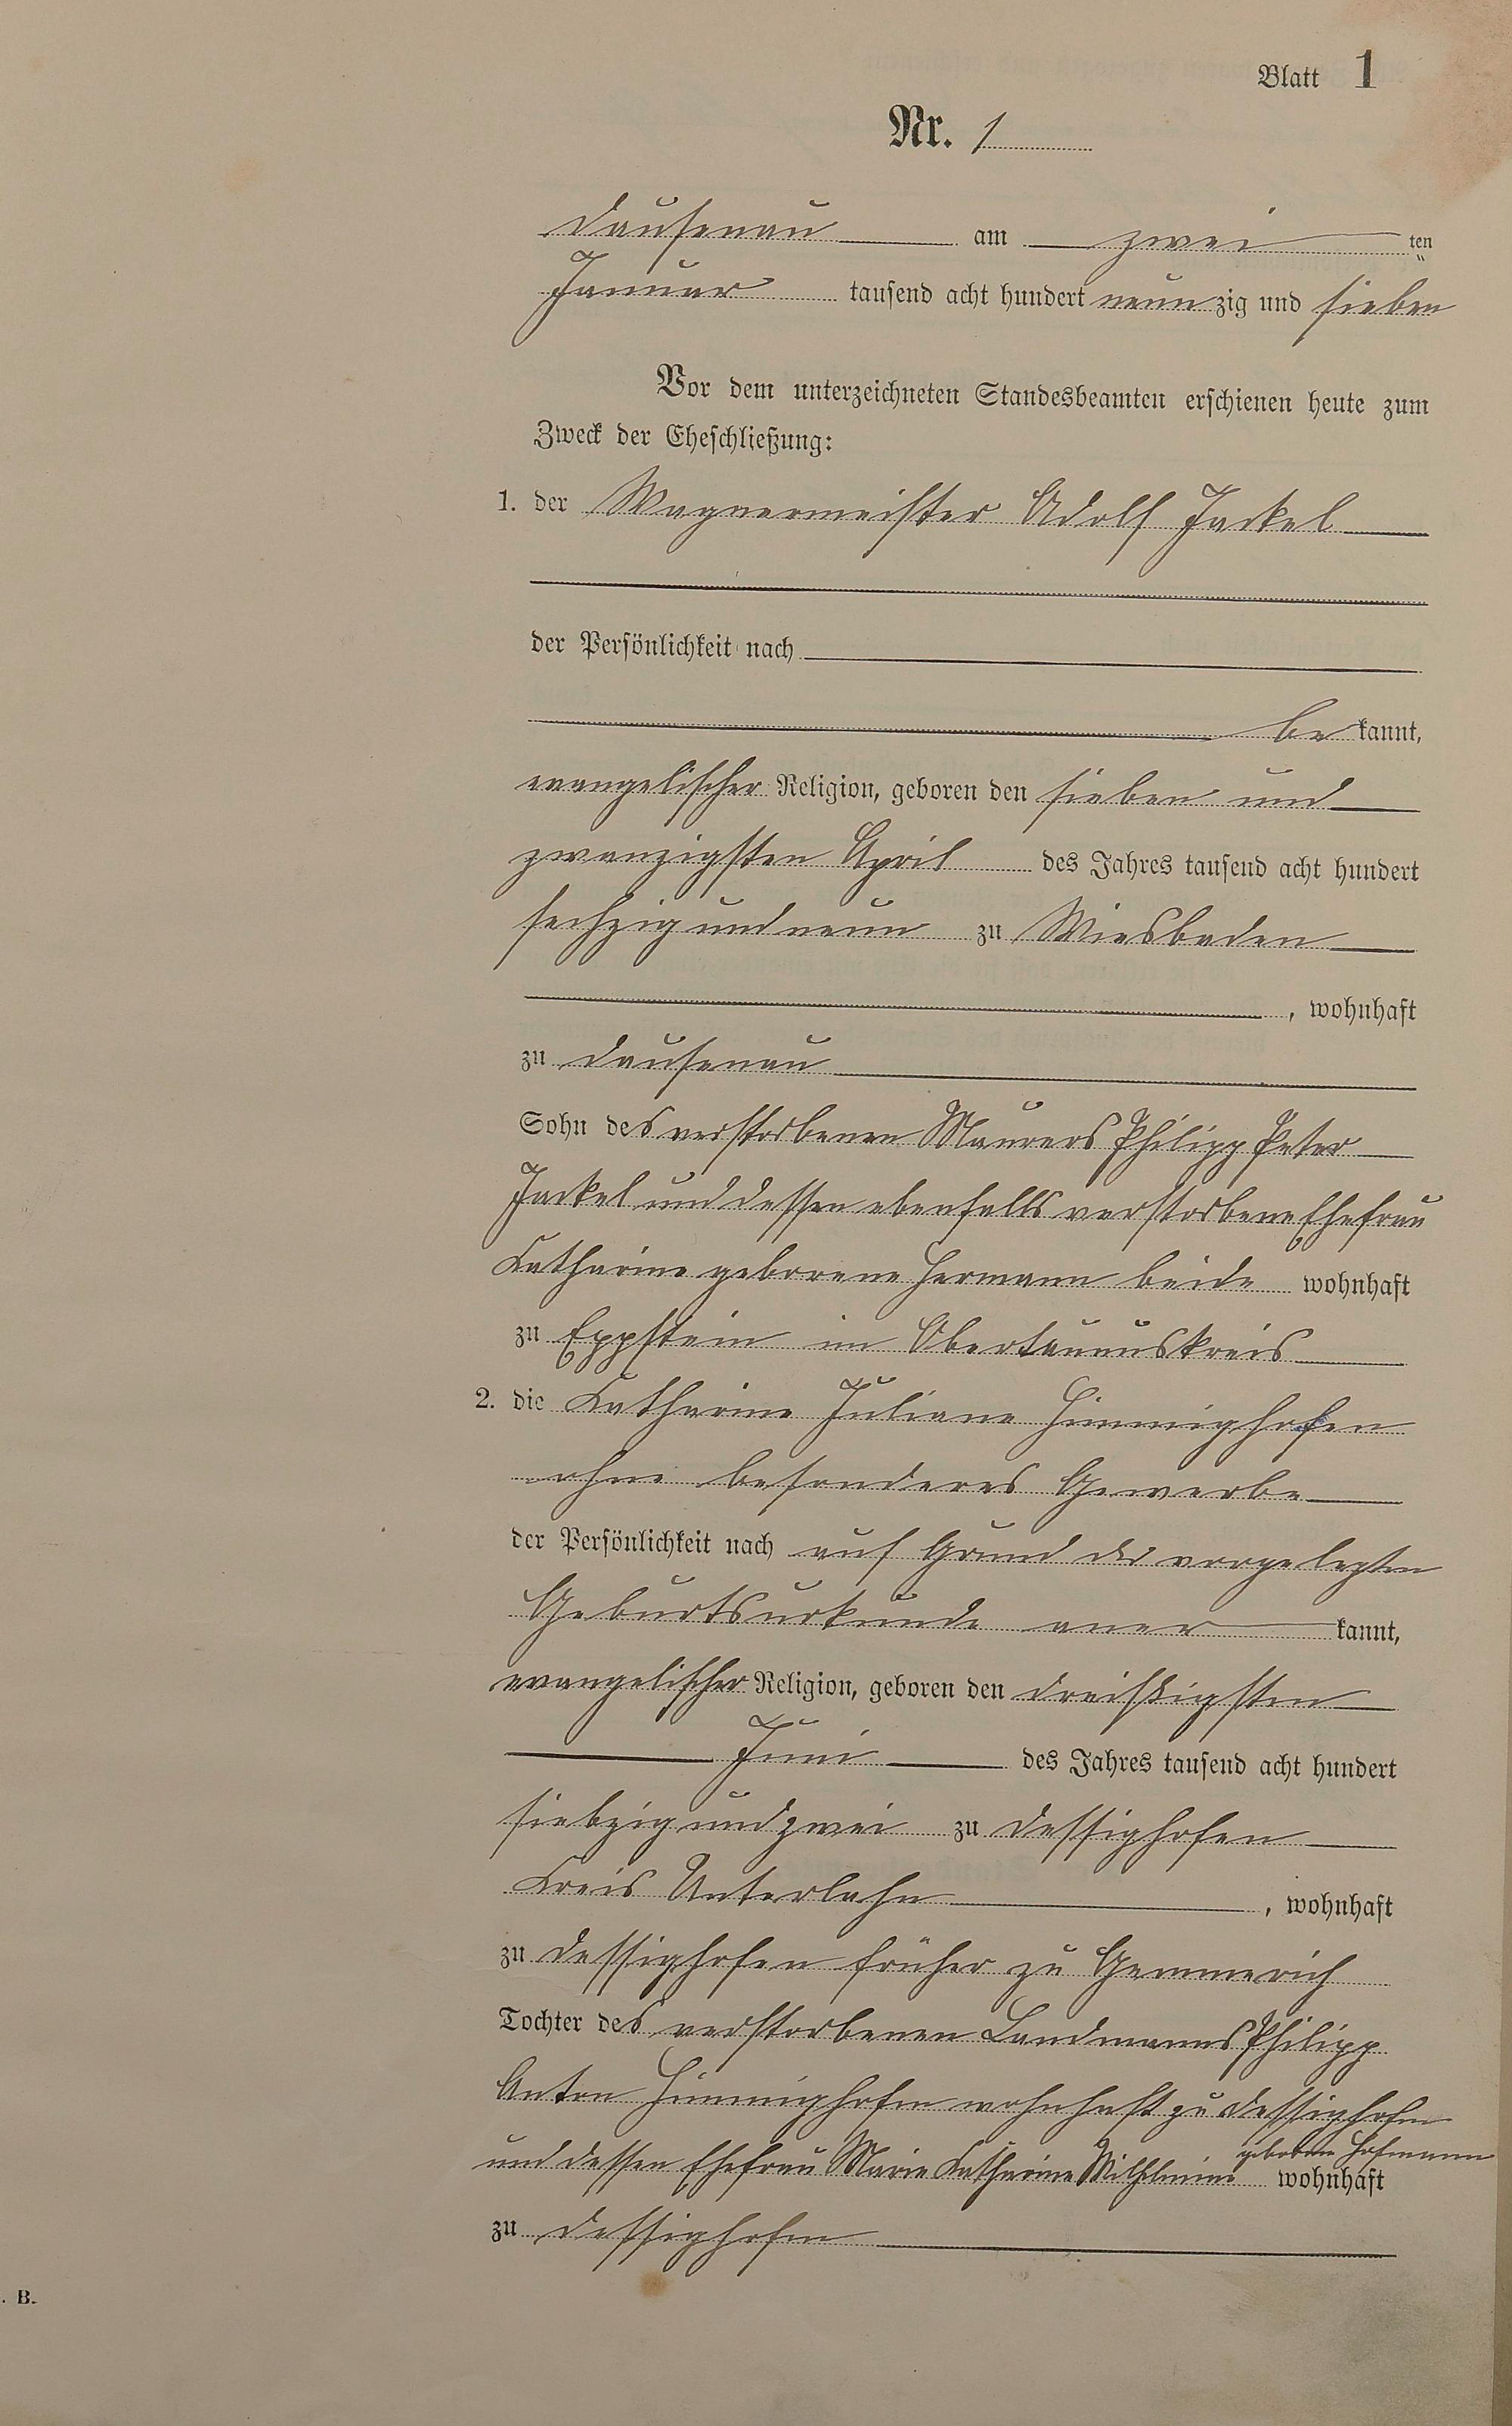 Blatt 1
Nr. 1
Dausenau am zwei ten
Januar tausend acht hundert neun zig und sieben
Vor dem unterzeichneten Standesbeamten erschienen heute zum
Zweck der Eheschließung:
1. der Wagnermeister Adolf Jackel
der Persönlichkeit nach
be kannt,
evangelischer Religion, geboren den sieben und
zwanzigsten April des Jahres tausend acht hundert
sechzig und neun zu Wiesbaden
, wohnhaft
zu Dausenau
Sohn des verstorbenen Maurers Philipp Peter
Jackel und dessen ebenfalls verstorbene Ehefrau
Katharine geborene Hermann beide wohnhaft
zu Eppstein im Obertaunuskreis
2. die Katharine Juliane Himmighofen
ohne besonderes Gewerbe
der Persönlichkeit nach auf Grund der vorgelegten
Geburtsurkunde aner kannt,
evangelischer Religion, geboren den dreißigsten
Juni des Jahres tausend acht hundert
siebzig und zwei zu Dessighofen
Kreis Unterlahn , wohnhaft
zu Dessighofen früher zu Gemmerich
Tochter des verstorbenen Landmanns Philipp
Anton Himmighofen wohnhaft zu Dessighofen
geborene Hofmann
und dessen Ehefrau Marie Katharine Wilhelmine wohnhaft
zu Dessighofen
. B.